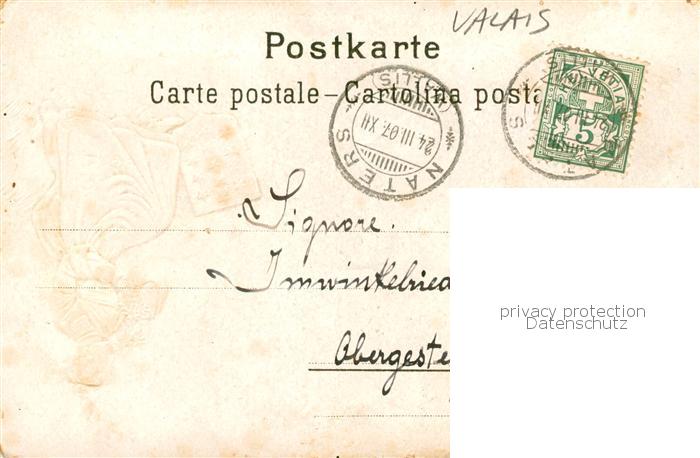 VALAIS
Postkarte
Carte postale – Cartolina posta
HELVETIA
5
NATERS
24.III.07.XII
Signore.
Imwinkelried
Obergeste
privacy protection
Datenschutz